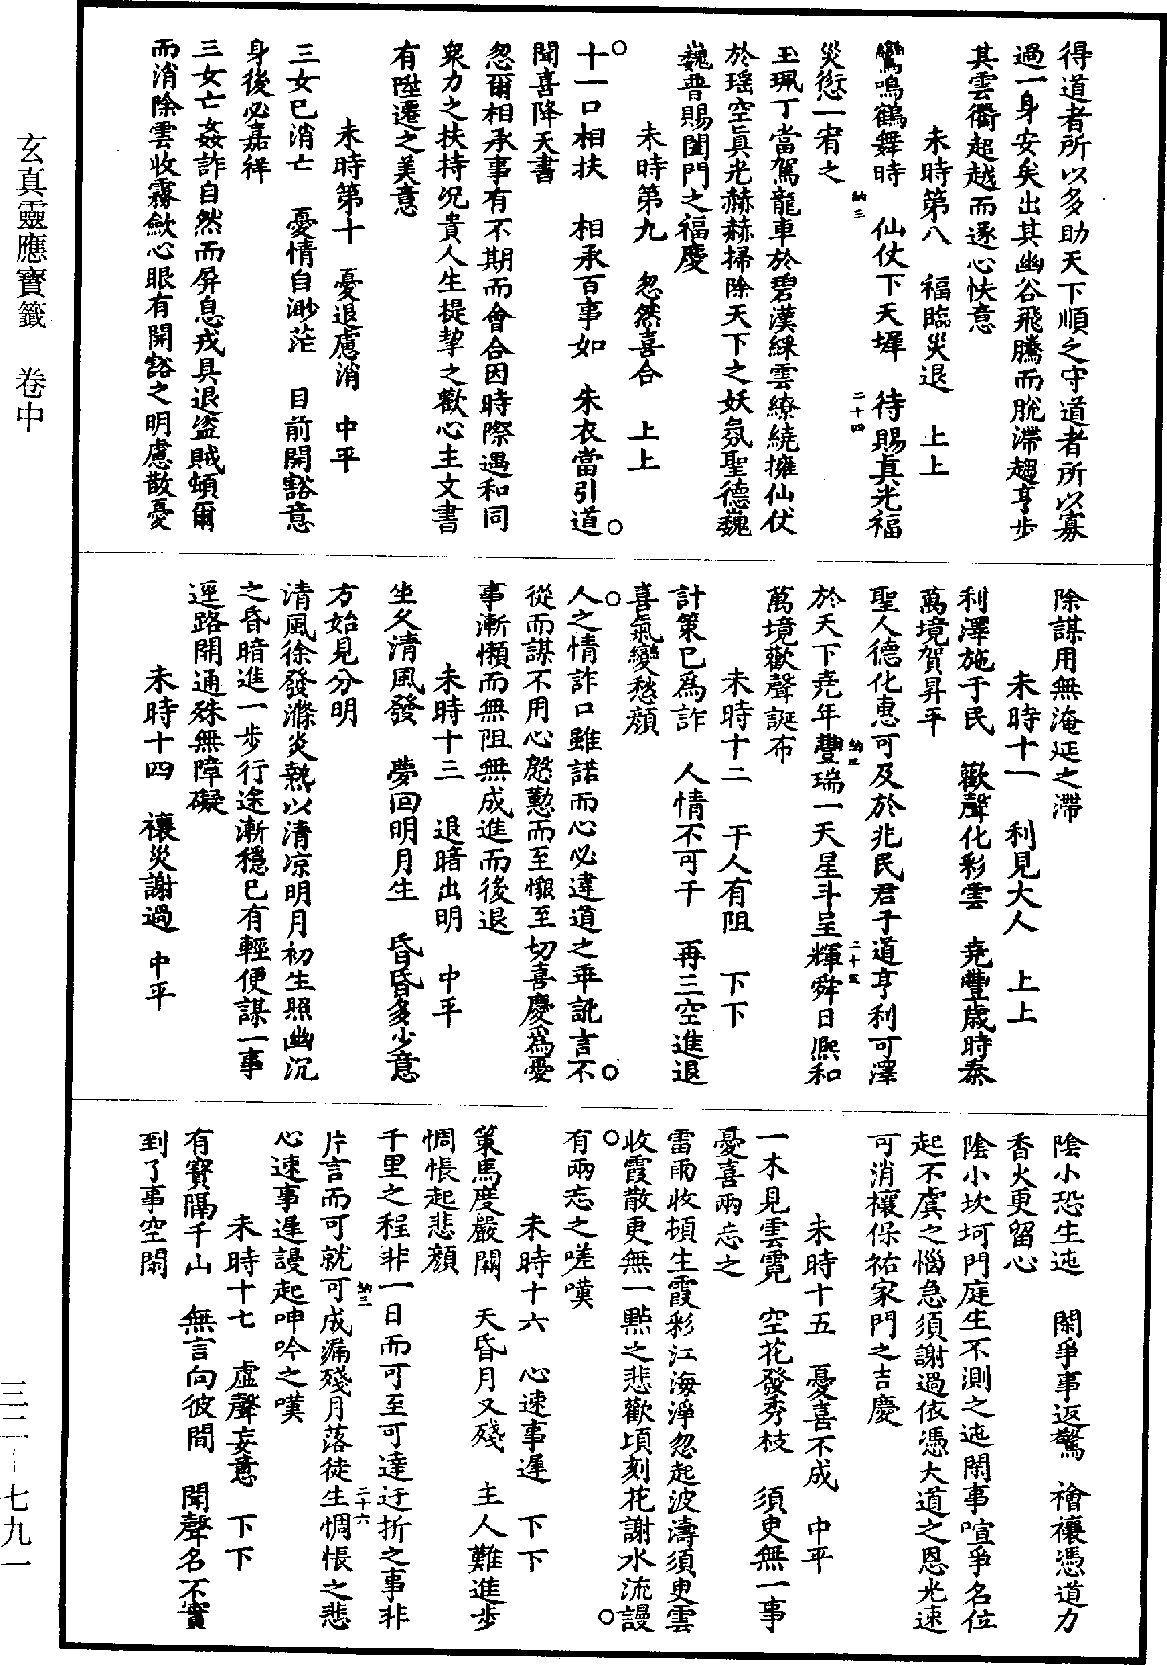 得道者所以多助天下順之守道者所以寡
過一身安矣出其幽谷飛騰而脫滯趨亨步
其雲衢超越而遂心快意
未時第八　福臨災退　上上
鸞鳴鶴舞時　仙仗下天墀　待賜真光福
災愆一宥之
玉珮丁當駕龍車於碧漢綵雲繚繞擁仙仗
於瑤空眞光赫赫掃除天下之妖氛聖德巍
巍普賜閨門之福慶
未時第九　忽然喜合　上上
十一口相扶　相承百事如　朱衣當引道
聞喜降天書
忽爾相承事有不期而會合因時際遇和同
衆力之扶持况貴人生提挈之歡心主文書
有陞遷之美意
未時第十　憂退慮消　中平
三女已消亡　憂情自渺茫　目前開豁意
身後必嘉祥
三女亡姦詐自然而屏息戎具退盜賊頓爾
而消除雲收霧歛心眼有開豁之明慮散憂
除謀用無淹延之滯
未時十一　利見大人　上上
利澤施于民　歡聲化彩雲　堯豐歲時泰
萬境賀昇平
聖人德化惠可及於兆民君子道亨利可澤
於天下堯年豐瑞一天星斗呈輝舜日熙和
萬境歡聲誕布
未時十二　干人有阻　下下
計策已爲詐　人情不可干　再三空進退
喜氣變愁顔
人之情詐口雖諾而心必違道之乖訛言不
從而謀不用心慇懃而至懇至切喜慶爲憂
事漸懶而無阻無成進而後退
未時十三　退暗出明　中平
坐久清風發　夢回明月生　昏昏多少意
方始見分明
清風徐發滌炎熱以清凉明月初生照幽沉
之昏暗進一步行途漸穩已有輕便謀一事
逕路開通殊無障礙
未時十四　禳災謝過　中平
陰小恐生迍　閑爭事返驚　禬禳憑道力
香火更留心
陰小坎坷門庭生不測之迍閑事喧爭名位
起不虞之惱急須謝過依憑大道之恩光速
可消禳保祐家門之吉慶
未時十五　憂喜不成　中平
一木見雲霓　空花發秀枝　須臾無一事
憂喜兩忘之
雷雨收頓生霞彩江海淨忽起波濤須臾雲
收霞散更無一點之悲歡頃刻花謝水流謾
有兩忘之嗟嘆
未時十六　心速事遲　下下
策馬度嚴關　天昏月又殘　主人難進步
惆悵起悲顔
千里之程非一日而可至可達迂折之事非
片言而可就可成漏殘月落徒生惆悵之悲
心速事遲謾起呻吟之嘆
未時十七　虛聲妄意　下下
有寳隔千山　無言向彼間　聞聲名不實
到了事空閑
納三
二十四
納三
二十五
納三
二十六
玄真靈應寶籤　卷中
三二―七九一